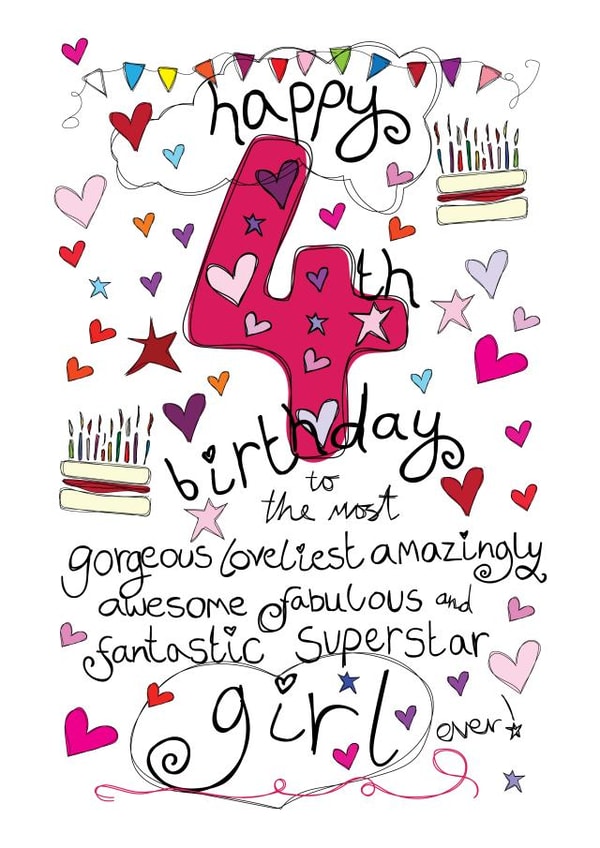 happy
4th
birthday
to
the most
gorgeous loveliest amazingly
awesome fabulous and
fantastic superstar
girl
ever!